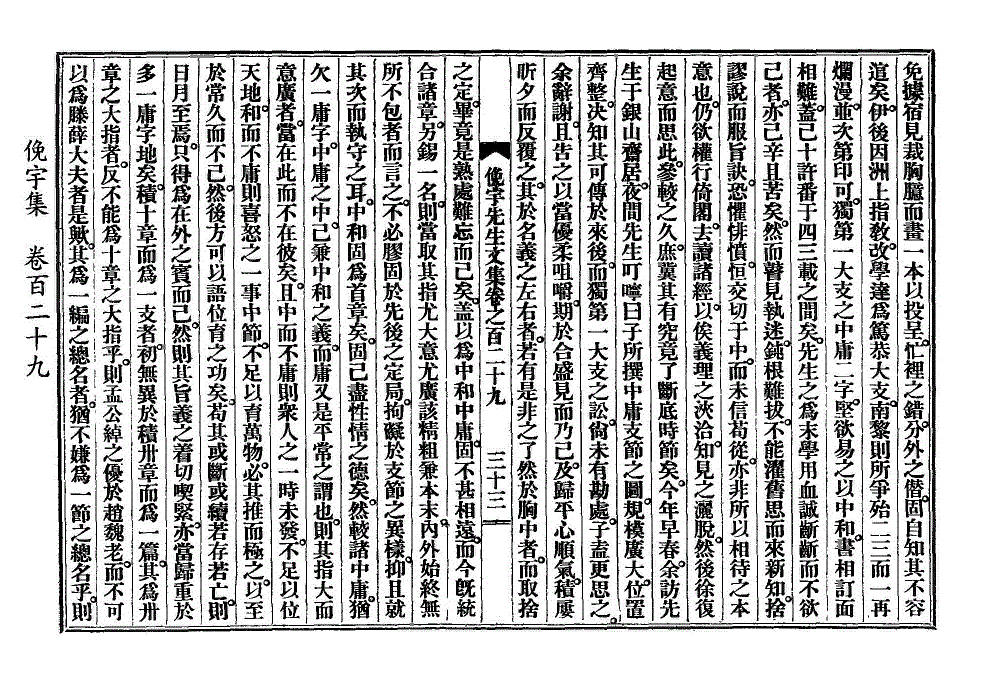 免據宿見裁胸臆而畫一本以投呈忙裡之錯分外之僭固自知其不容
逭矣伊後因洲上指敎改學達爲篤恭大支南黎則所爭殆二三而一再
爛漫並次第印可獨第一大支之中庸二字堅欲易之以中和書相訂面
相難蓋已十許番于四三載之間矣先生之爲末學用血誠斷斷而不欲
己者亦已辛且苦矣然而瞽見執迷鈍根難拔不能濯舊思而來新知捨
謬說而服旨訣恐懼悱憤恒交切于中而未信苟從亦非所以相待之本
意也仍欲權行倚閣去讀諸經以俟義理之浹洽知見之灑脫然後徐復
起意而思此參較之久庶冀其有究竟了斷底時節矣今年早春余訪先
生于銀山齋居夜間先生叮嚀曰子所撰中庸支節之圖規模廣大位置
齊整决知其可傳於來後而獨第一大支之訟尙未有勘處子盍更思之
余辭謝且告之以當優柔咀嚼期於合盛見而乃已及歸平心順氣積屢
昕夕而反覆之其於名義之左右者若有是非之了然於胸中者而取捨
俛宇先生文集卷之百二十九 三十三
之定畢竟是熟處難忘而已矣蓋以爲中和中庸固不甚相遠而今旣統
合諸章另錫一名則當取其指尤大意尤廣該精粗兼本末內外始終無
所不包者而言之不必膠固於先後之定局拘礙於支節之異樣抑且就
其次而執守之耳中和固爲首章矣固已盡性情之德矣然較諸中庸猶
欠一庸字中庸之中已兼中和之義而庸又是平常之謂也則其指大而
意廣者當在此而不在彼矣且中而不庸則衆人之一時未發不足以位
天地和而不庸則喜怒之一事中節不足以育萬物必其推而極之以至
於常久而不已然後方可以語位育之功矣苟其或斷或續若存若亡則
日月至焉只得爲在外之賓而已然則其旨義之着切喫緊亦當歸重於
多一庸字地矣積十章而爲一支者初無異於積卅章而爲一篇其爲卅
章之大指者反不能爲十章之大指乎則孟公綽之優於趙魏老而不可
以爲滕薛大夫者是歟其爲一編之總名者猶不嫌爲一節之總名乎則
俛宇集 卷百二十九